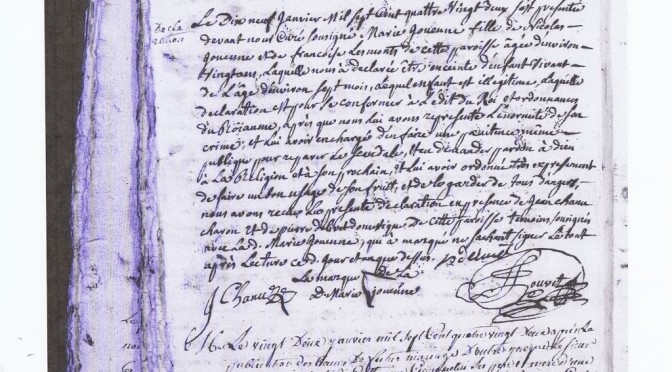 Decla
ration
Le Dix neuf Janvier Mil sept Cent quattre Vingt deux s'est presentée
devant nous Curé soussigné Marie Jouenne fille de Nicolas
Jouenne et de francoise Lesmonts de cette paroisse agée denviron
Vingt ans, Laquelle nous à declarée être enceinte denfant Vivant
de Lâge denviron sept mois, Lequel enfant est illegitime, Laquelle
declaration est pour se conformer à L'edit du Roi et ordonnances
du Roiaume, après que nous Lui avons representé L'enormité de son
crime, et Lui avoir enchargé den faire une penitence même
publique pour reparer Le scandale, et en demander pardon à dieu
à La Religion et à son prochain, et Lui avoir ordonné très expressement
de faire un bon usage de son fruit, et de le garder de tous dangers,
nous avons recue La presente declaration en presence de Jean chanu
charon et de pierre domestique de cette paroisse temoins soussignés
avec Lad. Marie Jouenne, qui à marqué ne sachant signer Le tout
après Lecture ced. Jour et an que dessus.
La marque de La
J Chanu D. Marie Jouenne
Le vingt Deux janvier mil sept Cent quatre vingt Deux après La
publication des bans de futur mariage